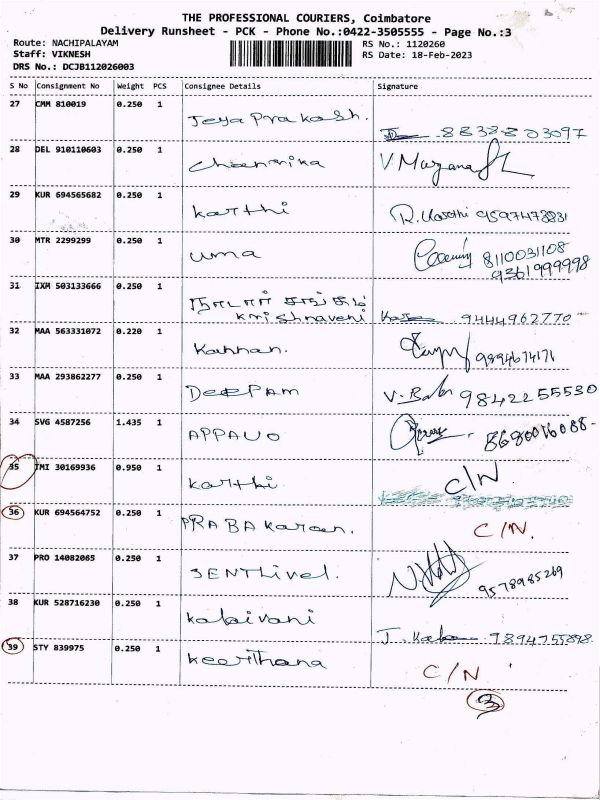 THE PROFESSIONAL COURIERS, Coimbatore
Delivery Runsheet - PCK - Phone No.:0422-3505555 - Page No.:3
Route: NACHIPALAYAM RS No.: 1120260
Staff: VIKNESH RS Date: 18-Feb-2023
DRS No.: DCJB112026003
S No Consignment No Weight PCS Consignee Details Signature
27 CMM 810019 0.250 1
Jeya Prakash. 88388 03097
28 DEL 910110603 0.250 1
V.
29 KUR 694565682 0.250 1
Karthi R.
30 MTR 2299299 0.250 1
uma 8110031108
9361999998
31 IXM 503133666 0.250 1
நாடார் சங்கம்
Krishnaveni 9444962770
32 MAA 563331072 0.220 1
Kannan. 9894674171
33 MAA 293862277 0.250 1
DEEPAM V. 98422 55530
34 SVG 4587256 1.435 1
APPAVO 8680016088-
35 IMI 30169936 0.950 1
Karthi. C/N
36 KUR 694564752 0.250 1
PRABAKaran. C/N.
37 PRO 14082065 0.250 1
SENTHivel. 9578985269
38 KUR 528716230 0.250 1
Kalaivani
J. 9894755898
39 STY 839975 0.250 1
Keerthana C/N
3